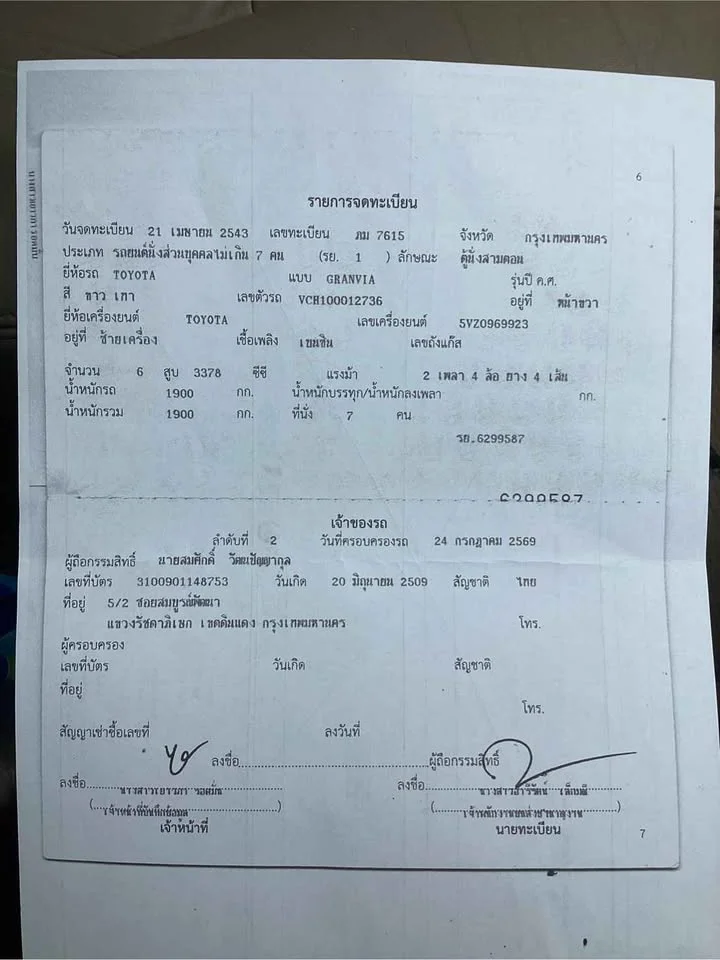 6
รายการจดทะเบียน
วันจดทะเบียน 21 เมษายน 2543 เลขทะเบียน ภม 7615 จังหวัด กรุงเทพมหานคร
ประเภท รถยนต์นั่งส่วนบุคคลไม่เกิน 7 คน (รย. 1 ) ลักษณะ ตู้นั่งสามตอน
ยี่ห้อรถ TOYOTA แบบ GRANVIA รุ่นปี ค.ศ.
สี ขาว เทา เลขตัวรถ VCH100012736 อยู่ที่ หน้าขวา
ยี่ห้อเครื่องยนต์ TOYOTA เลขเครื่องยนต์ 5VZ0969923
อยู่ที่ ซ้ายเครื่อง เชื้อเพลิง เบนซิน เลขถังแก๊ส
จำนวน 6 สูบ 3378 ซีซี แรงม้า 2 เพลา 4 ล้อ ยาง 4 เส้น
น้ำหนักรถ 1900 กก. น้ำหนักบรรทุก/น้ำหนักลงเพลา กก.
น้ำหนักรวม 1900 กก. ที่นั่ง 7 คน
รย.6299587
6299587
เจ้าของรถ
ลำดับที่ 2 วันที่ครอบครองรถ 24 กรกฎาคม 2569
ผู้ถือกรรมสิทธิ์ นายสมศักดิ์ วัฒนปัญญากุล
เลขที่บัตร 3100901148753 วันเกิด 20 มิถุนายน 2509 สัญชาติ ไทย
ที่อยู่ 5/2 ซอยสมบูรณ์พัฒนา
แขวงรัชดาภิเษก เขตดินแดง กรุงเทพมหานคร โทร.
ผู้ครอบครอง
เลขที่บัตร วันเกิด สัญชาติ
ที่อยู่
โทร.
สัญญาเช่าซื้อเลขที่ ลงวันที่
ลงชื่อ ผู้ถือกรรมสิทธิ์
ลงชื่อ ลงชื่อ
เจ้าหน้าที่ นายทะเบียน
7